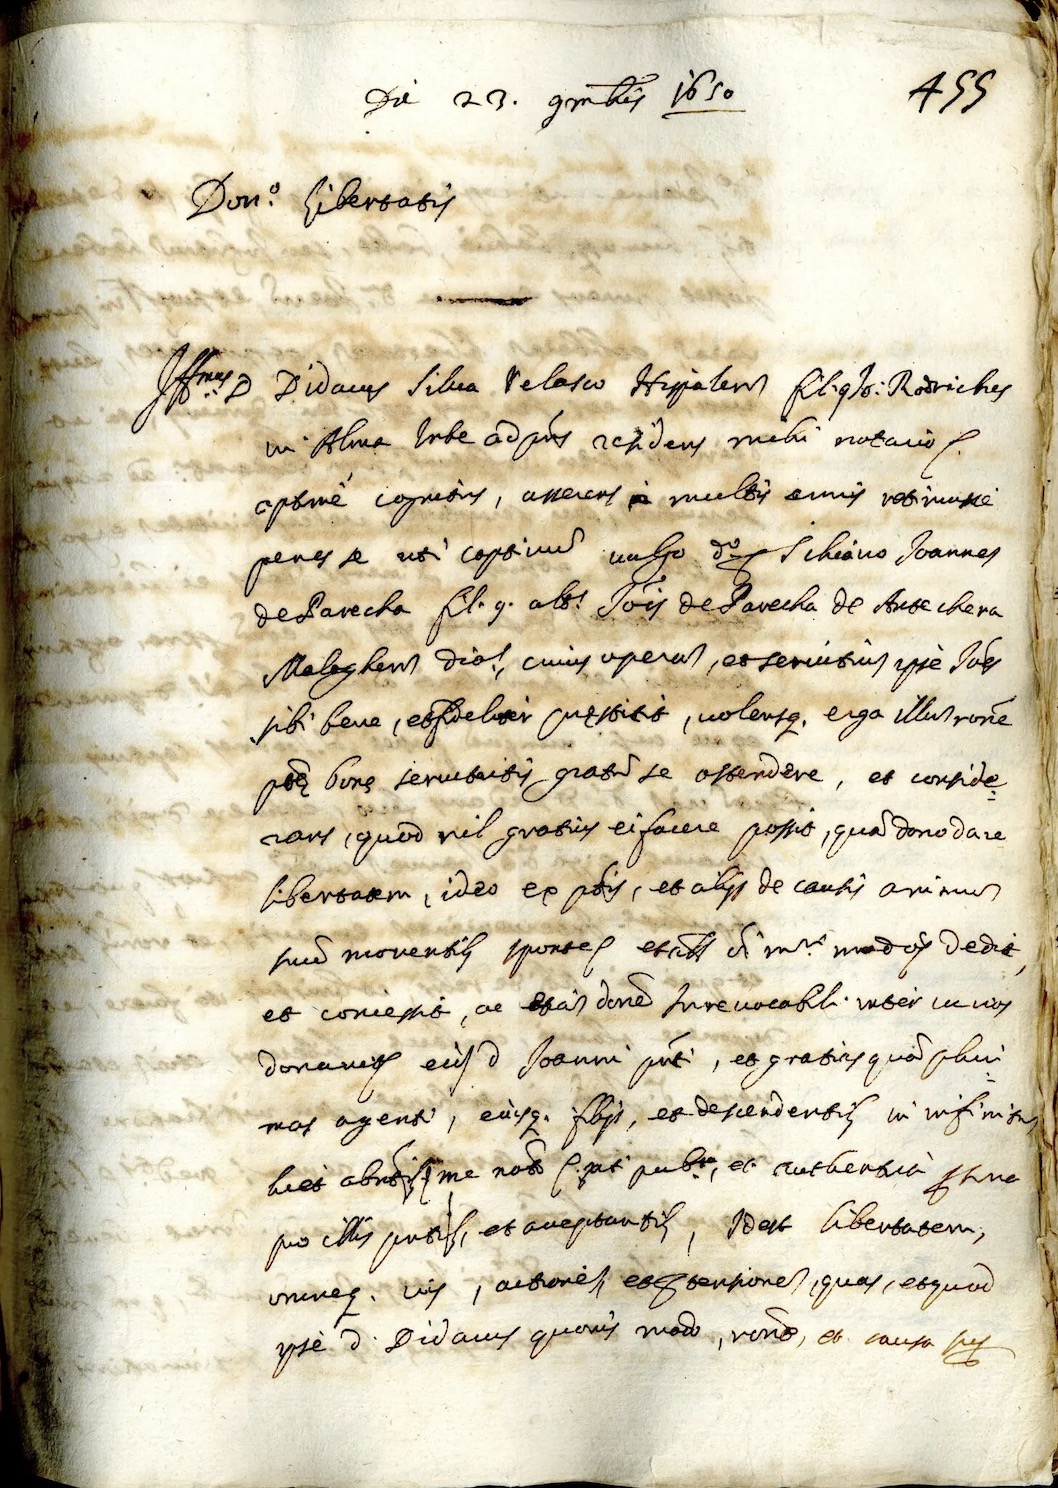 Die 23. 9mbris 1650
455
Don.o libertatis
Illmus D Didacus Silua Velasco Hispalens fil. q Jo: Rodriches
in Alma Urbe ad pns residens mihi notario
optime cognitus, asserens a multis annis retinuisse
penes se uti captiuu uulgo do Schiauo Joannes
de Parecha fil. q. alt.s Jois de Parecha de Antechera
Malaghens dioc., cuius operas, et seruitius ipse Joes
sibi bene, et fideliter prestitit, uolensq. erga illius rone
pte bone seruitutis gratu se ostendere, et conside
rans, quod nil gratius ei facere possit, qua dono dare
libertatem, ideo ex ptis, et alijs de causis animus
suu mouentis sponte et oi mri modo dedit,
et concessit, ac titulo done Irreuocabilr inter uiuos
donauit eid d Joanni pnti, et gratias qua pluri
mas agenti, eiusq. filijs, et descendentis in infinitu
licet absentis me noto pnti publa, et authentica psona
pro illis pntis, et acceptantis, Idest libertatem,
omneq. ius, actiones, et ptensiones, quas, et quod
ipse d. Didacus quouis modo, rone, et causa sup